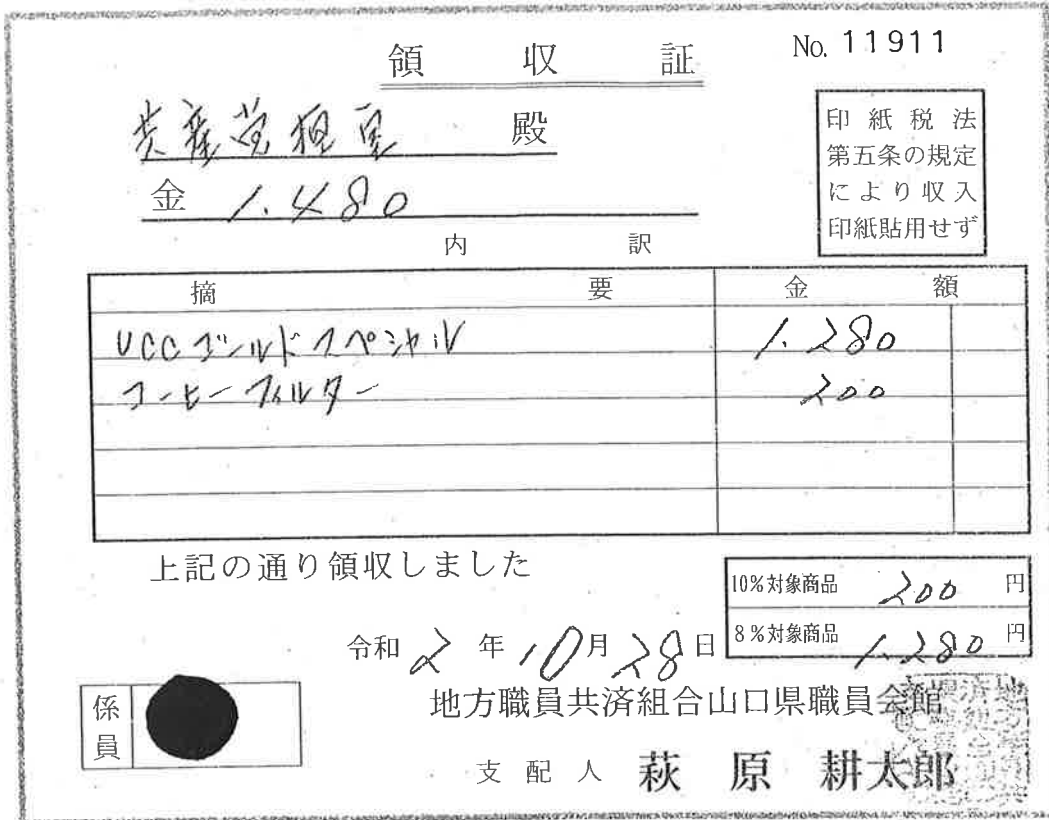 領収証
No. 11911
共産党控室 殿
金 1.480
印紙税法
第五条の規定
により収入
印紙貼用せず
内訳
摘要 金額
UCCゴールドスペシャル 1.280
コーヒーフィルター 200
上記の通り領収しました
10%対象商品 200 円
8%対象商品 1.280 円
令和 2 年 10 月 28 日
係員
地方職員共済組合山口県職員会館
支配人 萩原 耕太郎